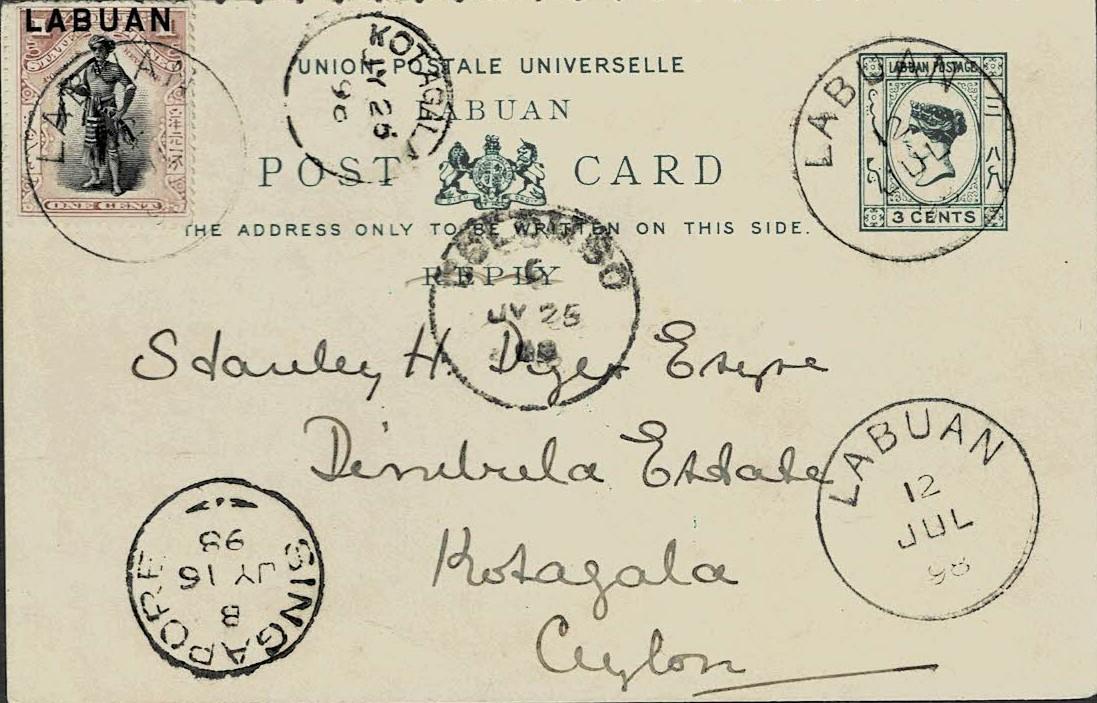 LABUAN
ONE CENT
LABUAN
KOTAGALA
JY 25
98
UNION POSTALE UNIVERSELLE
LABUAN
POST CARD
THE ADDRESS ONLY TO BE WRITTEN ON THIS SIDE.
REPLY
LABUAN
LABUAN POSTAGE
3 CENTS
COLOMBO
JY 25
98
Stanley H. Dyer Esqre
Dimbula Estate
Kotagala
Ceylon
LABUAN
12
JUL
98
SINGAPORE
B
JY 16
98